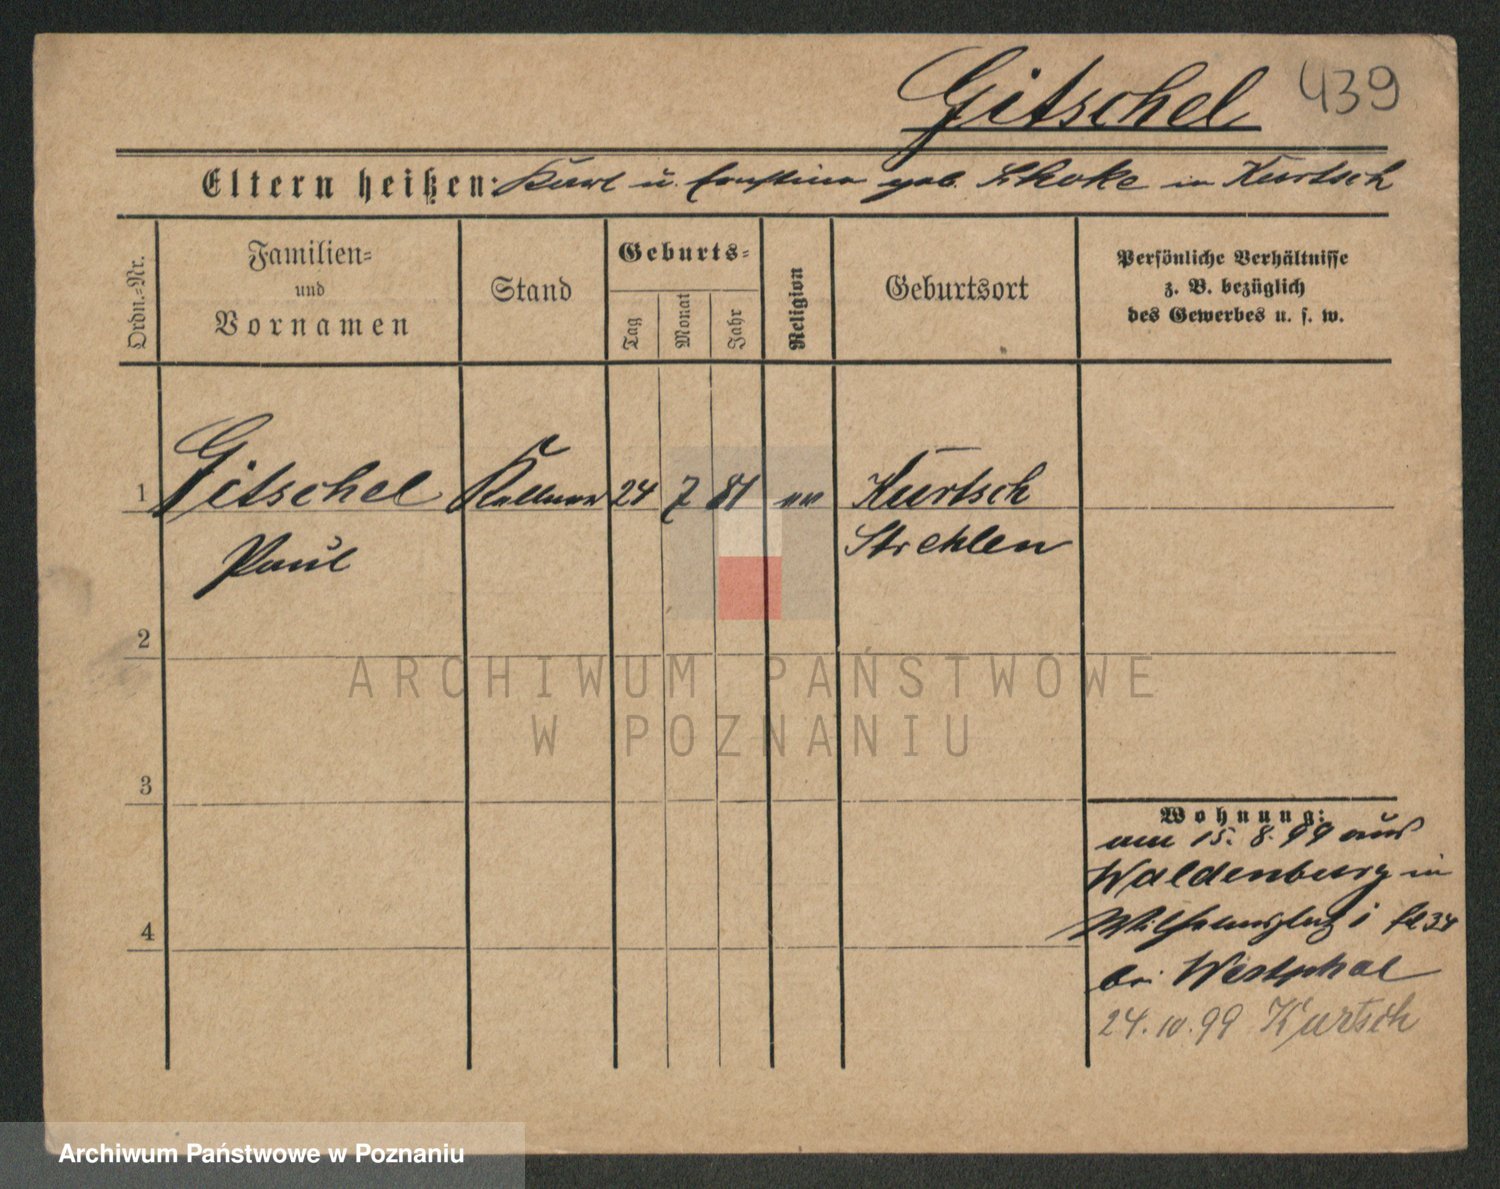 Gitschel 439
Eltern heißen: Karl u. Ernstine geb. in Kurtsch
Ordn.-Nr.
Familien-
und
Vornamen
Stand
Geburts-
Tag
Monat
Jahr
Religion
Geburtsort
Persönliche Verhältnisse
z. B. bezüglich
des Gewerbes u. s. w.
1 Gitschel Kellner 24 7 81 Kurtsch
Paul Strehlen
2
3
4
Wohnung:
am 15. 8. 99 aus
Waldenburg in
bei Westphal
24. 10. 99 Kurtsch
ARCHIWUM PAŃSTWOWE
W POZNANIU
Archiwum Państwowe w Poznaniu